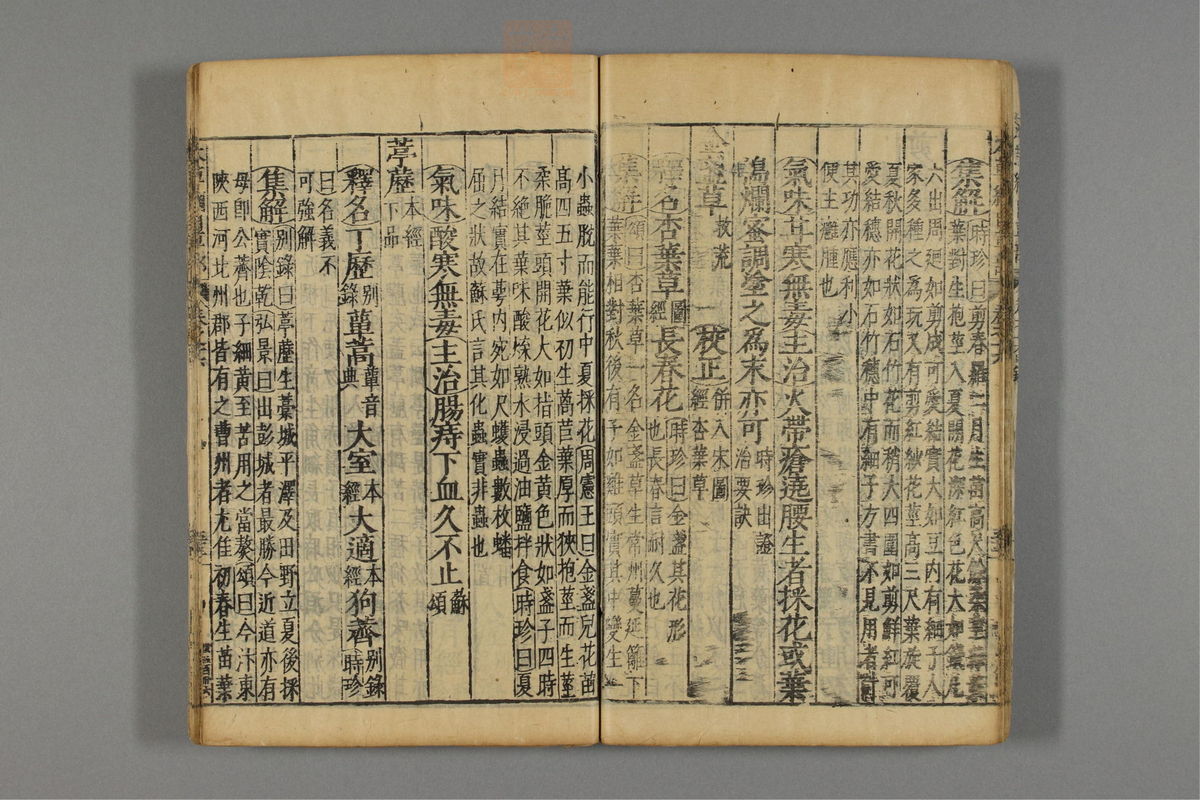 集解 時珍曰剪春羅二月生苗高尺
葉對生抱莖入夏開花深紅色花大如錢凡
六出周廻如剪成可愛結實大如豆内有細子人
家多種之爲玩又有剪紅紗花莖高三尺葉旋覆
夏秋開花狀如石竹花而稍大四圍如剪鮮紅可
愛結穗亦如石竹穗中有細子方書不見用者計
其功亦應利小
便主癰腫也
氣味甘寒無毒主治火帶瘡遶腰生者採花或葉
搗爛蜜調塗之爲末亦可 時珍出證治要訣
金盞草 救荒 校正 併入宋圖經杏葉草
釋名杏葉草 圖經 長春花 時珍曰金盞其花形也長春言耐久也
集解 頌曰杏葉草一名金盞草生常州蔓延籬下
葉葉相對秋後有子如雞頭實其中變生一
小蟲脫而能行中夏採花 周憲王曰金盞兒花苗
高四五寸葉似初生萵苣葉厚而狹抱莖而生莖
柔脆莖頭開花大如指頭金黄色狀如盞子四時
不絶其葉味酸煠熟水浸過油鹽拌食時珍曰夏
月結實在萼内宛如尺蠖蟲數枚蟠
屈之狀故蘇氏言其化蟲實非蟲也
氣味酸寒無毒主治腸痔下血久不止 蘇頌
葶藶 本經下品
釋名丁歷 別錄 蕇蒿 蕇音典 大室 本經 大適 本經 狗薺 別錄 時珍
曰名義不
可強解
集解 別錄曰葶藶生藁城平澤及田野立夏後採
實陰乾弘景曰出彭城者最勝今近道亦有
母卽公薺也子細黄至苦用之當熬頌曰今汴東
陜西河北州郡皆有之曹州者尤佳初春生苗葉